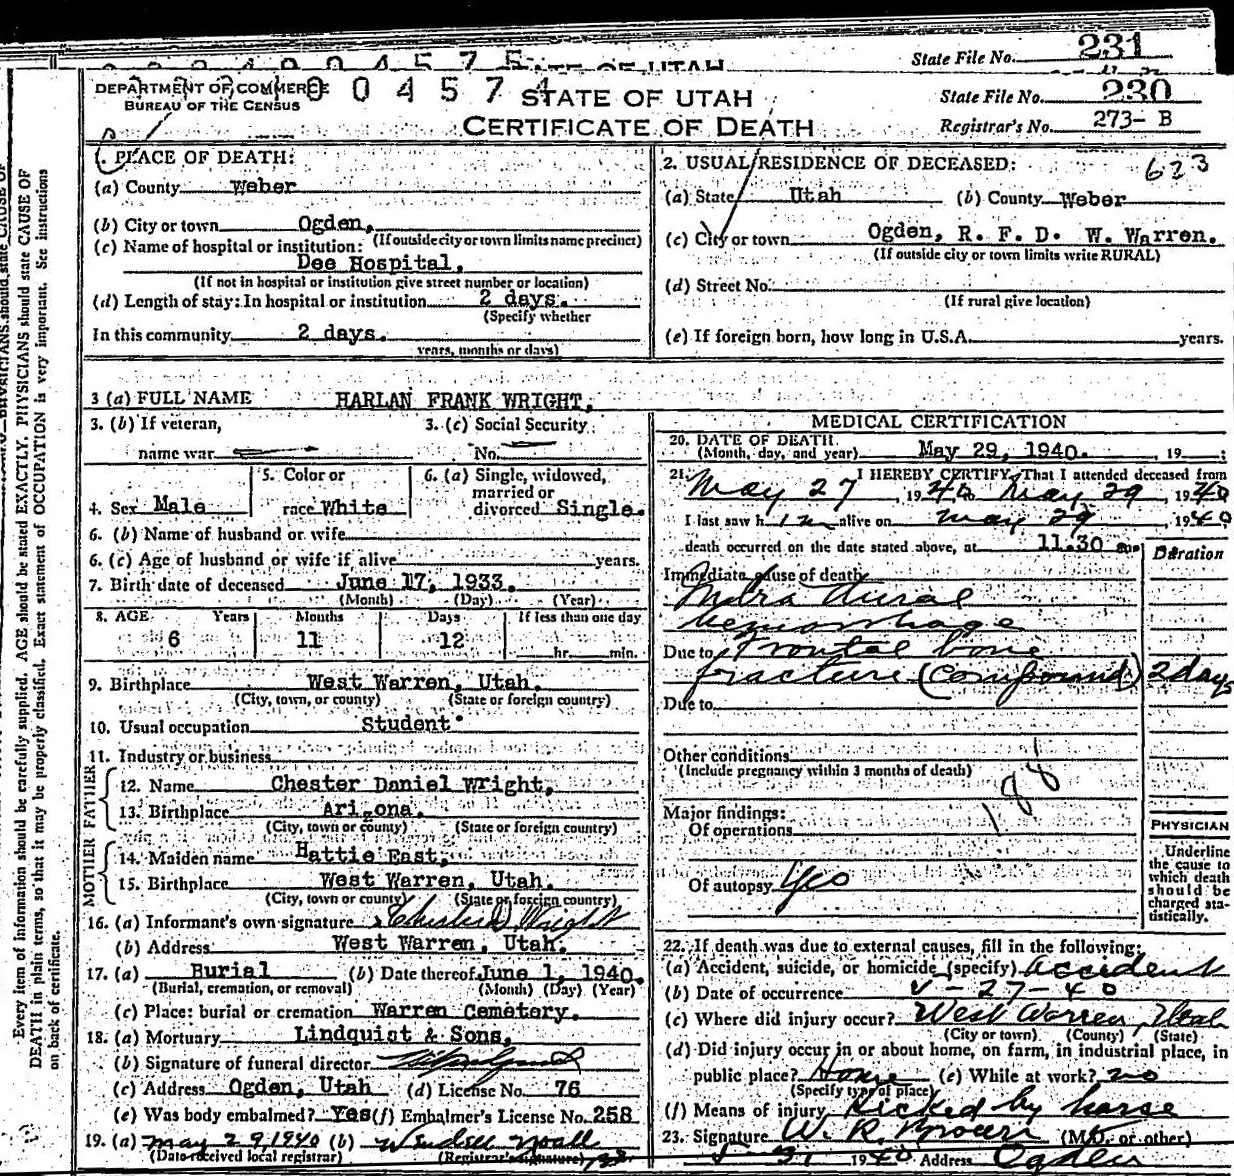 State File No. 231
004575
STATE OF UTAH
DEPARTMENT OF COMMERCE
BUREAU OF THE CENSUS
004574
STATE OF UTAH
CERTIFICATE OF DEATH
State File No. 230
Registrar's No. 273-B
1. PLACE OF DEATH:
(a) County Weber
(b) City or town Ogden,
(If outside city or town limits name precinct)
(c) Name of hospital or institution:
Dee Hospital,
(If not in hospital or institution give street number or location)
(d) Length of stay: In hospital or institution 2 days.
(Specify whether
In this community 2 days.
years, months or days)
2. USUAL RESIDENCE OF DECEASED: 623
(a) State Utah (b) County Weber
(c) City or town Ogden, R. F. D. W. Warren.
(If outside city or town limits write RURAL)
(d) Street No.
(If rural give location)
(e) If foreign born, how long in U.S.A. years.
3 (a) FULL NAME HARLAN FRANK WRIGHT,
3. (b) If veteran, 3. (c) Social Security
name war No.
4. Sex Male
5. Color or
race White
6. (a) Single, widowed,
married or
divorced Single.
6. (b) Name of husband or wife
6. (c) Age of husband or wife if alive years.
7. Birth date of deceased June 17, 1933.
(Month) (Day) (Year)
8. AGE Years Months Days If less than one day
6 11 12 hr. min.
9. Birthplace West Warren, Utah.
(City, town, or county) (State or foreign country)
10. Usual occupation Student
11. Industry or business
FATHER
12. Name Chester Daniel Wright,
13. Birthplace Arizona.
(City, town or county) (State or foreign country)
MOTHER
14. Maiden name Hattie East,
15. Birthplace West Warren, Utah.
(City, town or county) (State or foreign country)
16. (a) Informant's own signature Chester D. Wright
(b) Address West Warren, Utah.
17. (a) Burial (b) Date thereof June 1, 1940.
(Burial, cremation, or removal) (Month) (Day) (Year)
(c) Place: burial or cremation Warren Cemetery.
18. (a) Mortuary Lindquist & Sons,
(b) Signature of funeral director
(c) Address Ogden, Utah (d) License No. 76
(e) Was body embalmed? Yes (f) Embalmer's License No. 258
19. (a) May 29 1940 (b) Wendell Noall
(Date received local registrar) (Registrar's signature)
MEDICAL CERTIFICATION
20. DATE OF DEATH
(Month, day, and year) May 29, 1940. , 19 ;
21. I HEREBY CERTIFY, That I attended deceased from
May 27, 1940 May 29, 1940
I last saw him alive on May 29, 1940
death occurred on the date stated above, at 11.30 m. Duration
Immediate cause of death
Intra dural
hemorrhage
Due to Frontal bone
fracture (Compound) 2 days
Due to
Other conditions
(Include pregnancy within 3 months of death)
188
Major findings:
Of operations
Of autopsy Yes
PHYSICIAN
Underline
the cause to
which death
should be
charged sta-
tistically.
22. If death was due to external causes, fill in the following:
(a) Accident, suicide, or homicide (specify) Accident
(b) Date of occurrence V-27-40
(c) Where did injury occur? West Warren, Utah
(City or town) (County) (State)
(d) Did injury occur in or about home, on farm, in industrial place, in
public place? Home (e) While at work? no
(Specify type of place)
(f) Means of injury Kicked by horse
23. Signature W. R. Brown (M.D. or other)
5-31 1940 Address Ogden
Every item of information should be carefully supplied. AGE should be stated EXACTLY. PHYSICIANS should state CAUSE OF
DEATH in plain terms, so that it may be properly classified. Exact statement of OCCUPATION is very important. See instructions
on back of certificate.